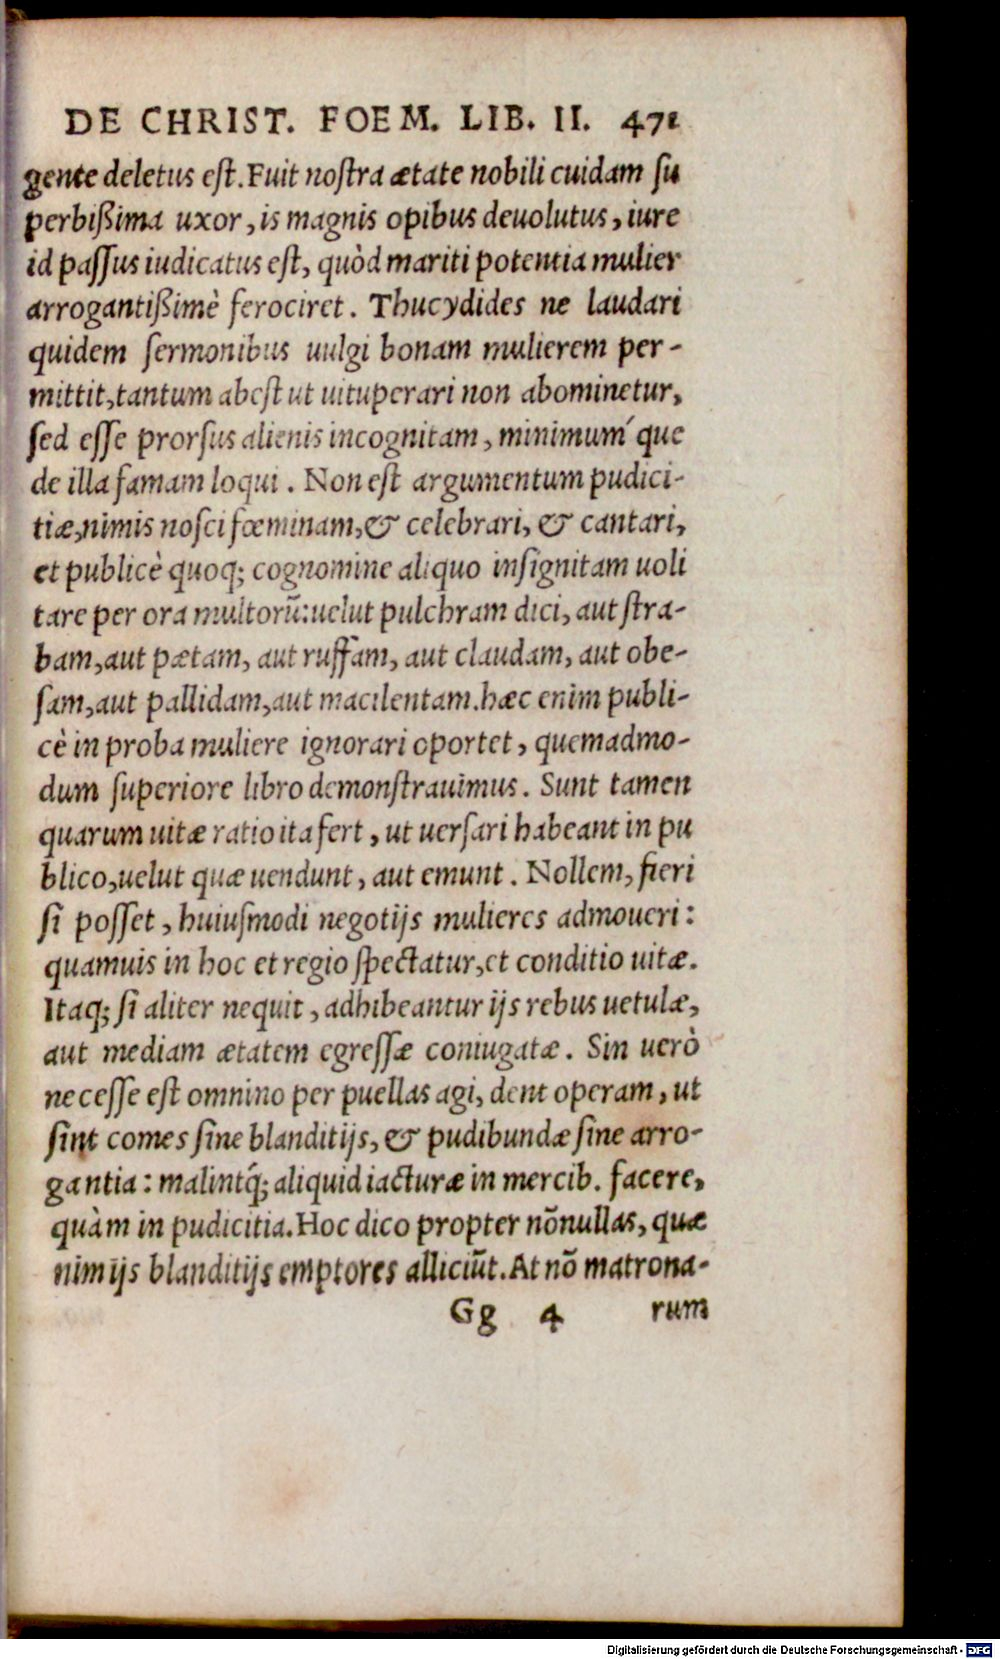 DE CHRIST. FOEM. LIB. II. 471
gente deletus est. Fuit nostra ætate nobili cuidam su
perbißima uxor, is magnis opibus deuolutus, iure
id passus iudicatus est, quòd mariti potentia mulier
arrogantißimè ferociret. Thucydides ne laudari
quidem sermonibus uulgi bonam mulierem per-
mittit, tantum abest ut uituperari non abominetur,
sed esse prorsus alienis incognitam, minimumʹque
de illa famam loqui. Non est argumentum pudici-
tiæ, nimis nosci fœminam, & celebrari, & cantari,
et publicè quoq; cognomine aliquo insignitam uoli
tare per ora multorũ: uelut pulchram dici, aut stra-
bam, aut pætam, aut ruffam, aut claudam, aut obe-
sam, aut pallidam, aut macilentam. hæc enim publi-
cè in proba muliere ignorari oportet, quemadmo-
dum superiore libro demonstrauimus. Sunt tamen
quarum uitæ ratio ita fert, ut uersari habeant in pu
blico, uelut quæ uendunt, aut emunt. Nollem, fieri
si posset, huiusmodi negotijs mulieres admoueri:
quamuis in hoc et regio spectatur, et conditio uitæ.
Itaq; si aliter nequit, adhibeantur ijs rebus uetulæ,
aut mediam ætatem egressæ coniugatæ. Sin uerò
necesse est omnino per puellas agi, dent operam, ut
sint comes sine blanditijs, & pudibundæ sine arro-
gantia: malintq́; aliquid iacturæ in mercib. facere,
quàm in pudicitia. Hoc dico propter nõnullas, quæ
nimijs blanditijs emptores alliciũt. At nõ matrona-
Gg 4 rum
Digitalisierung gefördert durch die Deutsche Forschungsgemeinschaft - DFG